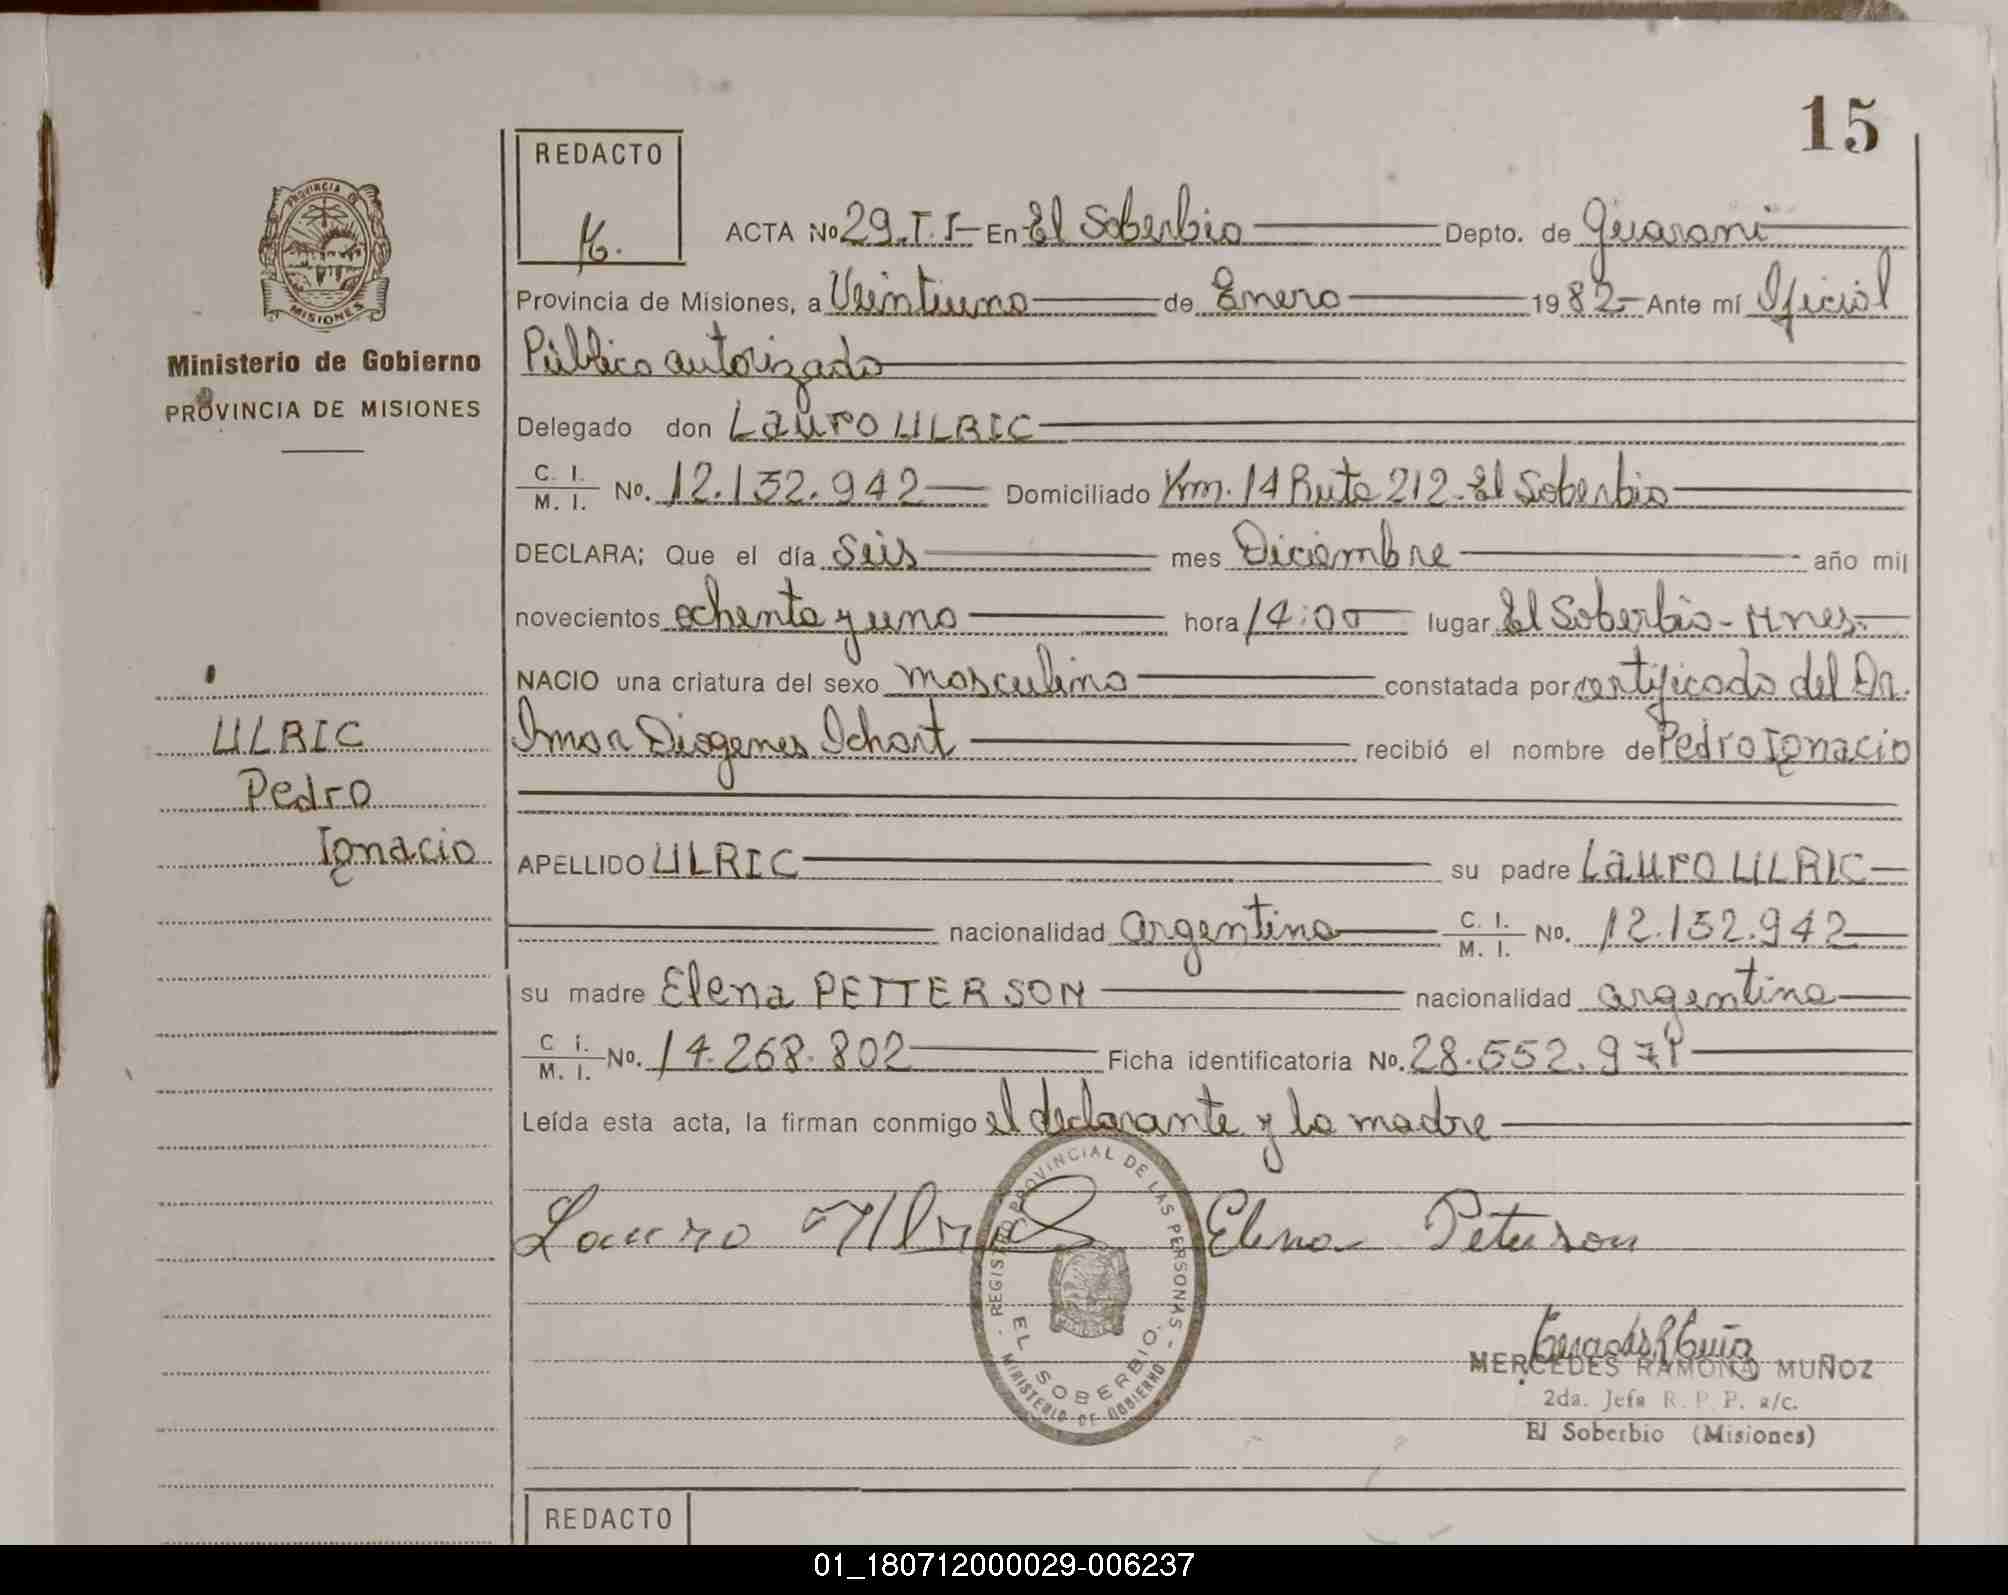 15
REDACTO
ACTA No 29.T.I- En El Soberbio Depto. de Guarani
PROVINCIA DE
MISIONES
Provincia de Misiones, a Veintiuno de Enero 1982- Ante mí Oficial
Ministerio de Gobierno
PROVINCIA DE MISIONES
Público autorizado
Delegado don Lauro ULRIC
C. I. M. I. No. 12.132.942 Domiciliado Km. 14 Ruta 212- El Soberbio
DECLARA; Que el día Seis mes Diciembre año mil
novecientos ochenta y uno hora 14:00 lugar El Soberbio - Mnes-
NACIO una criatura del sexo masculino constatada por certificado del Dr.
Omar Diogenes Ichart recibió el nombre de Pedro Ignacio
ULRIC
Pedro
Ignacio
APELLIDO ULRIC su padre Lauro ULRIC
nacionalidad argentina C. I. M. I. No. 12.132.942
su madre Elena PETTERSON nacionalidad argentina
C i. M. I. No. 14.268.802 Ficha identificatoria No. 28.552.971
Leída esta acta, la firman conmigo el declarante y la madre
Lauro Ulric Elena Peterson
REGISTRO PROVINCIAL DE LAS PERSONAS -
EL SOBERBIO.
MINISTERIO DE GOBIERNO
MERCEDES RAMONA MUÑOZ
2da. Jefa R. P. P. a/c.
El Soberbio (Misiones)
REDACTO
01_180712000029-006237